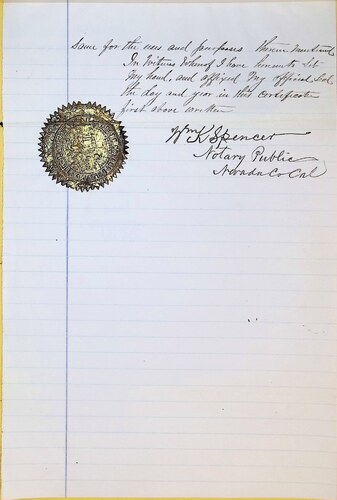 Same for the uses and purposes therein mentioned
In Witness Whereof I have hereunto Set
My hand, and affixed My official Seal,
the day and year in this certificate
first above written
Wm K Spencer
Notary Public
Nevada Co Cal